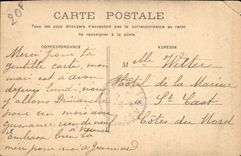 20F
CARTE POSTALE
Tous les pays étrangers n'acceptent pas la correspondance au recto
Se renseigner à la poste
CORRESPONDANCE
ADRESSE
Merci pour ta
gentille carte, mon
mari est à
depuis nous
y allons Dimanche
pour un mois
Embrasse bien ta
mère pour moi
M elle
Hôtel de la Marine
à St Cast
Côtes du Nord